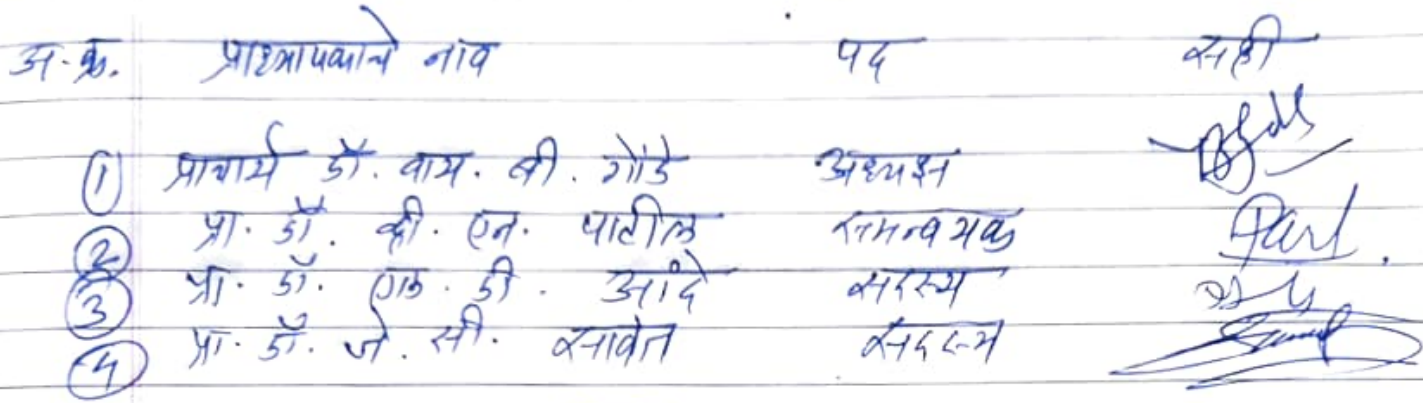 अ.क्र. प्राध्यापकाचे नाव पद सही
① प्राचार्य डॉ. वाय. बी. गोंडे अध्यक्ष
② प्रा. डॉ. व्ही. एन. पाटील समन्वयक
③ प्रा. डॉ. एल. डी. आंदे सदस्य
④ प्रा. डॉ. जे. सी. सावंत सदस्य